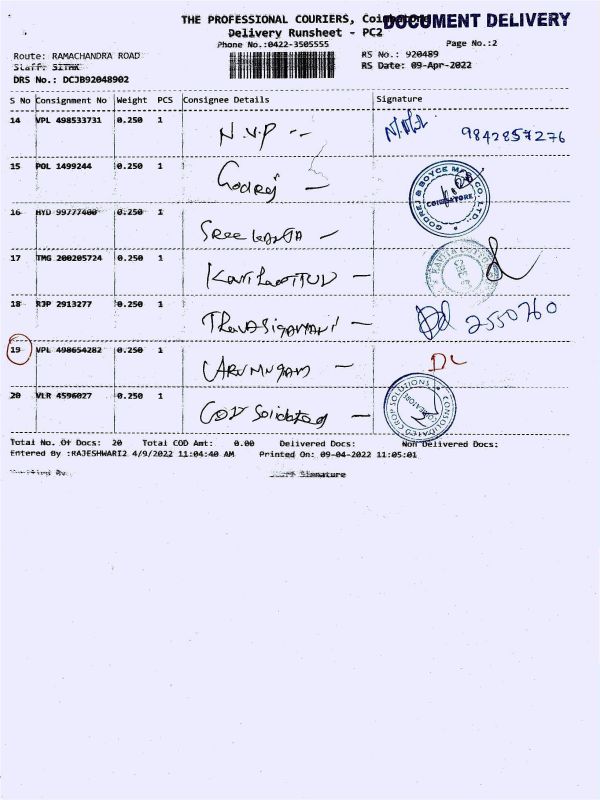 THE PROFESSIONAL COURIERS, Coimbatore
DOCUMENT DELIVERY
Delivery Runsheet - PC2
Phone No.:0422-3505555
Page No.:2
Route: RAMACHANDRA ROAD
RS No.: 920489
Staff:
RS Date: 09-Apr-2022
DRS No.: DCJB92048902
S No Consignment No Weight PCS Consignee Details Signature
14 VPL 498533731 0.250 1 N.V.P -- 9842857276
15 POL 1499244 0.250 1 Godrej —
GODREJ & BOYCE MFG CO. LTD.
COIMBATORE
16 HYD 99777400 0.250 1 Sree —
17 TMG 200205724 0.250 1
18 RJP 2913277 0.250 1 2550760
19 VPL 498654282 0.250 1 ARUMUGAM — DL
20 VLR 4596027 0.250 1
CONSOLIDATED CROP SOLUTIONS
COIMBATORE
Total No. Of Docs: 20 Total COD Amt: 0.00 Delivered Docs: Non Delivered Docs:
Entered By :RAJESHWARI2 4/9/2022 11:04:40 AM Printed On: 09-04-2022 11:05:01
Verified By Signature